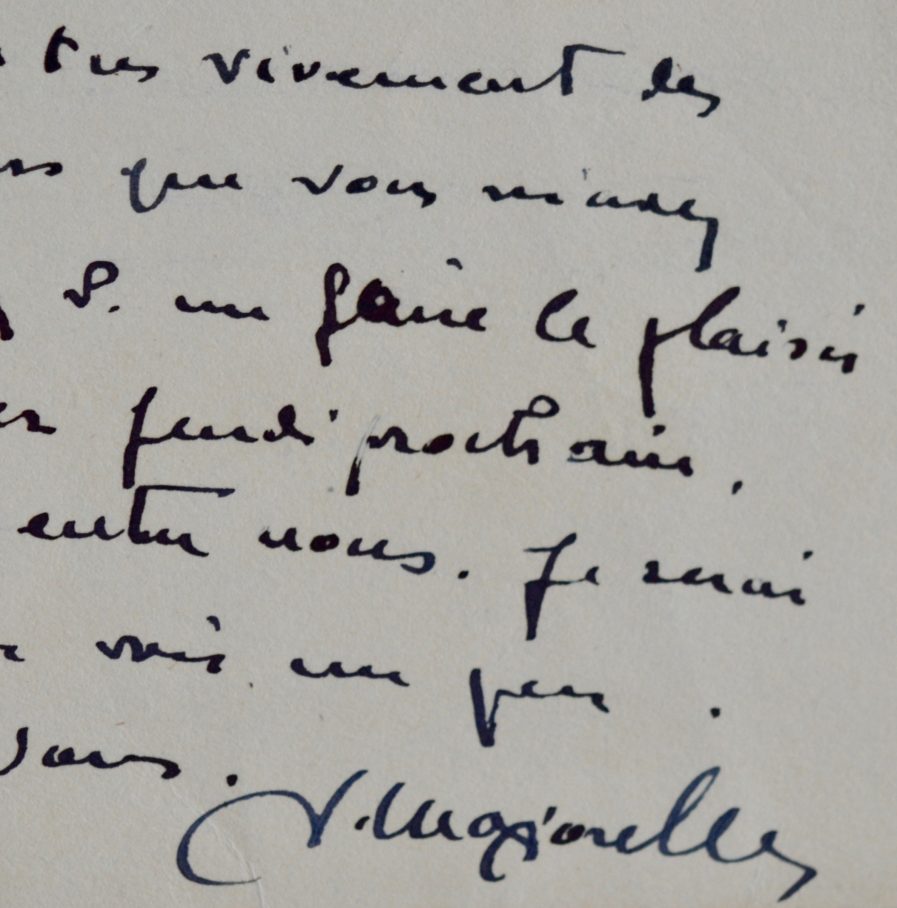 très vivement des
que vous m'avez
S. me faire le plaisir
jeudi prochain,
entre nous. Je serai
voir un peu.
J. Majorelle